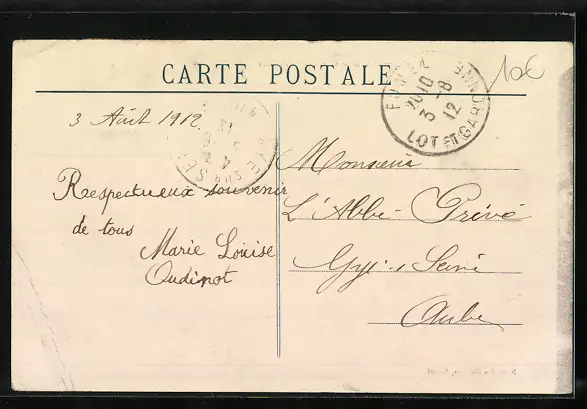 CARTE POSTALE
10€
FUMEL
20 10
3 - 8
12
LOT ET GARONNE
3 Août 1912
SUR SEINE
Respectueux souvenir
de tous
Marie Louise
Oudinot
Monsieur
L'Abbé Privé
Gyé s/ Seine
Aube